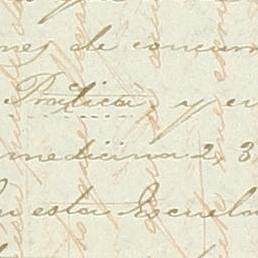 nes de concur
Practica, y en
medicina 2, 3
en esta Escuela